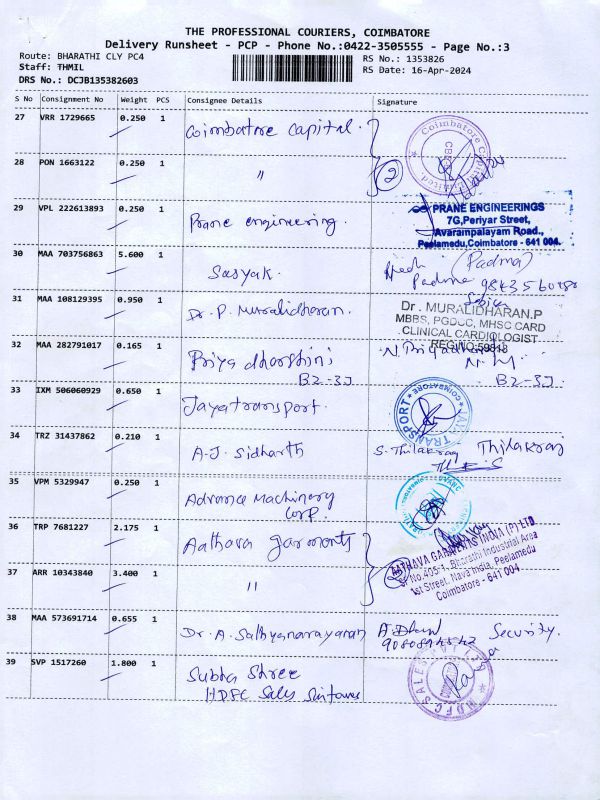 THE PROFESSIONAL COURIERS, COIMBATORE
Delivery Runsheet - PCP - Phone No.:0422-3505555 - Page No.:3
Route: BHARATHI CLY PC4
Staff: THMIL
DRS No.: DCJB135382603
RS No.: 1353826
RS Date: 16-Apr-2024
S No Consignment No Weight PCS Consignee Details Signature
27 VRR 1729665 0.250 1 Coimbatore Capital.
28 PON 1663122 0.250 1 "
2
29 VPL 222613893 0.250 1 Prane engineering.
PRANE ENGINEERINGS
7G,Periyar Street,
Avarampalayam Road.,
Peelamedu,Coimbatore - 641 004.
30 MAA 703756863 5.600 1 Sasyak.
(Padma)
Padma
31 MAA 108129395 0.950 1 Dr. P. Muralidharan.
Dr. MURALIDHARAN.P
MBBS, PGDCC, MHSC CARD
CLINICAL CARDIOLOGIST
32 MAA 282791017 0.165 1 Priya dharshini
B2-3J
B2-3J.
33 IXM 506060929 0.650 1 Jayatransport.
34 TRZ 31437862 0.210 1 A.J. Sidharth
S. Thilakraj Thilakraj
35 VPM 5329947 0.250 1 Advance Machinery
Corp.
36 TRP 7681227 2.175 1 Aathava Garments
37 ARR 10343840 3.400 1 "
AATHAVA GARMENTS INDIA (P) LTD
SF No.405-1, Bharathi Industrial Area
1st Street, Nava India, Peelamedu
Coimbatore - 641 004
38 MAA 573691714 0.655 1 Dr. A. Sathyanarayanan
Security.
39 SVP 1517260 1.800 1 Subha Shree
HDFC Sales
HDFC SALES